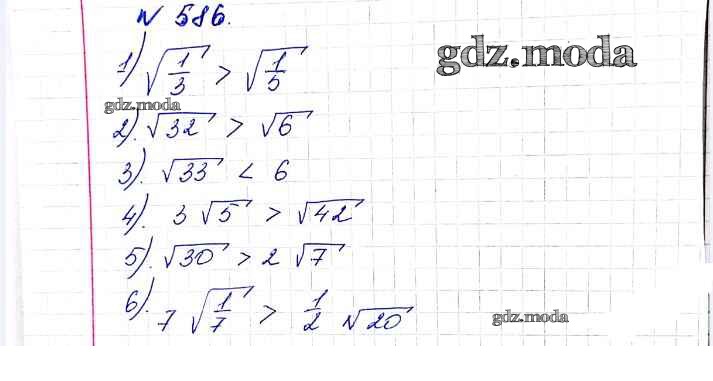 № 586.
gdz.moda
1) √(1/3) > √(1/5)
gdz.moda
2). √32 > √6
3). √33 < 6
4). 3 √5 > √42
5). √30 > 2 √7
6). 7 √(1/7) > 1/2 √20
gdz.moda